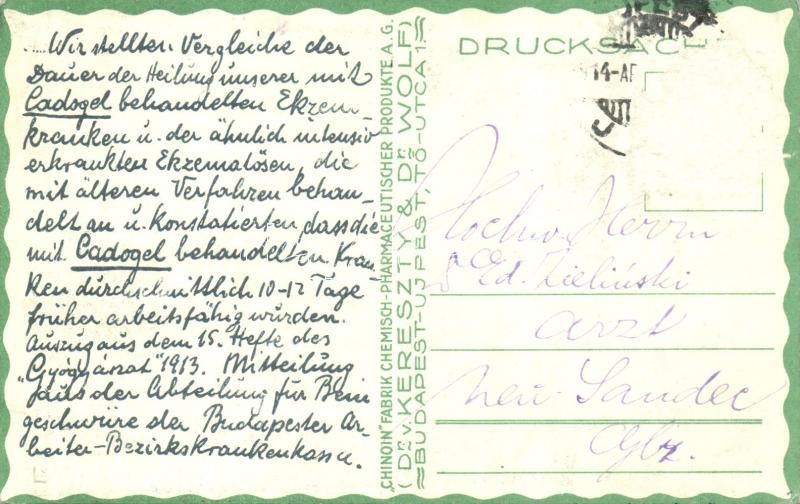 Wir stellten Vergleiche der
Dauer der Heilung unserer mit
Cadogel behandelten Ekzem-
kranken u. der ähnlich intensiv
erkrankten Ekzematösen, die
mit älteren Verfahren behan-
delt an u. konstatierten, dass die
mit Cadogel behandelten Kran-
ken durchschnittlich 10-12 Tage
früher arbeitsfähig wurden.
Auszug aus dem 15. Hefte des
"Gyógyászat" 1913. Mitteilung
aus der Abteilung für Bein
geschwüre der Budapester Ar-
beiter-Bezirkskrankenkassa.
"CHINOIN" FABRIK CHEMISCH-PHARMACEUTISCHER PRODUKTE A.G.
(DR. v. KERESZTY & DR. WOLF)
BUDAPEST-UJPEST, TÓ-UTCA 1.
DRUCKSACHE
14-AP
Hochw. Herrn
Ed. Zieliński
Arzt
Neu-Sandec
Glz.